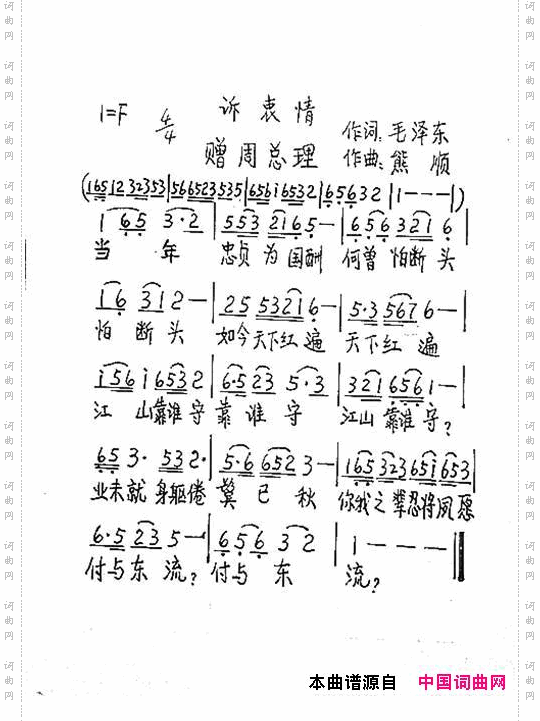 诉衷情
1=F 4/4
赠周总理
作词:毛泽东
作曲:熊顺
(165 12 32353|566523535|65616532|65632|1---|)
1 65 3·2|553 2165-|656 321 6|
当年 忠贞为国酬 何曾怕断头
16 312-|25 53216-|5·3 5676-|
怕断头 如今天下红遍 天下红遍
i56i6532|6·523 5·3|3216561-|
江山靠谁守 靠谁守 江山靠谁守?
653· 532·|5·6 6523-|165323651653|
业未就身躯倦 鬓已秋 你我之辈忍将夙愿
6·5 235-|656 32|1---
付与东流?付与东流?
本曲谱源自 中国词曲网
词曲网